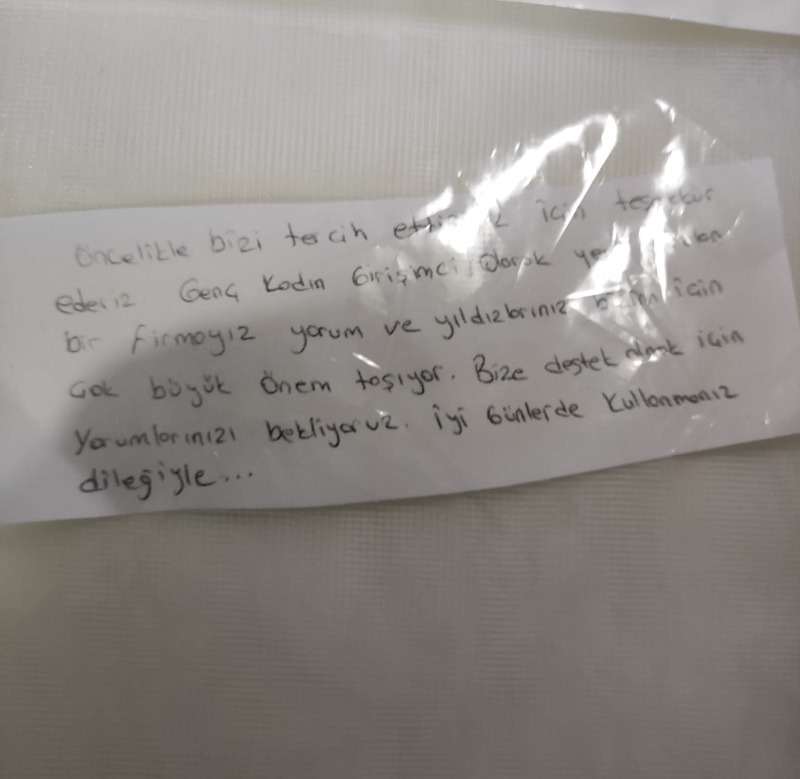 Öncelikle bizi tercih ettiğiniz için teşekkür
ederiz. Genç Kadın Girişimci Olarak
bir firmayız yorum ve yıldızlarınız bizim için
çok büyük önem taşıyor. Bize destek olmak için
Yorumlarınızı bekliyoruz. İyi Günlerde Kullanmanız
dileğiyle...